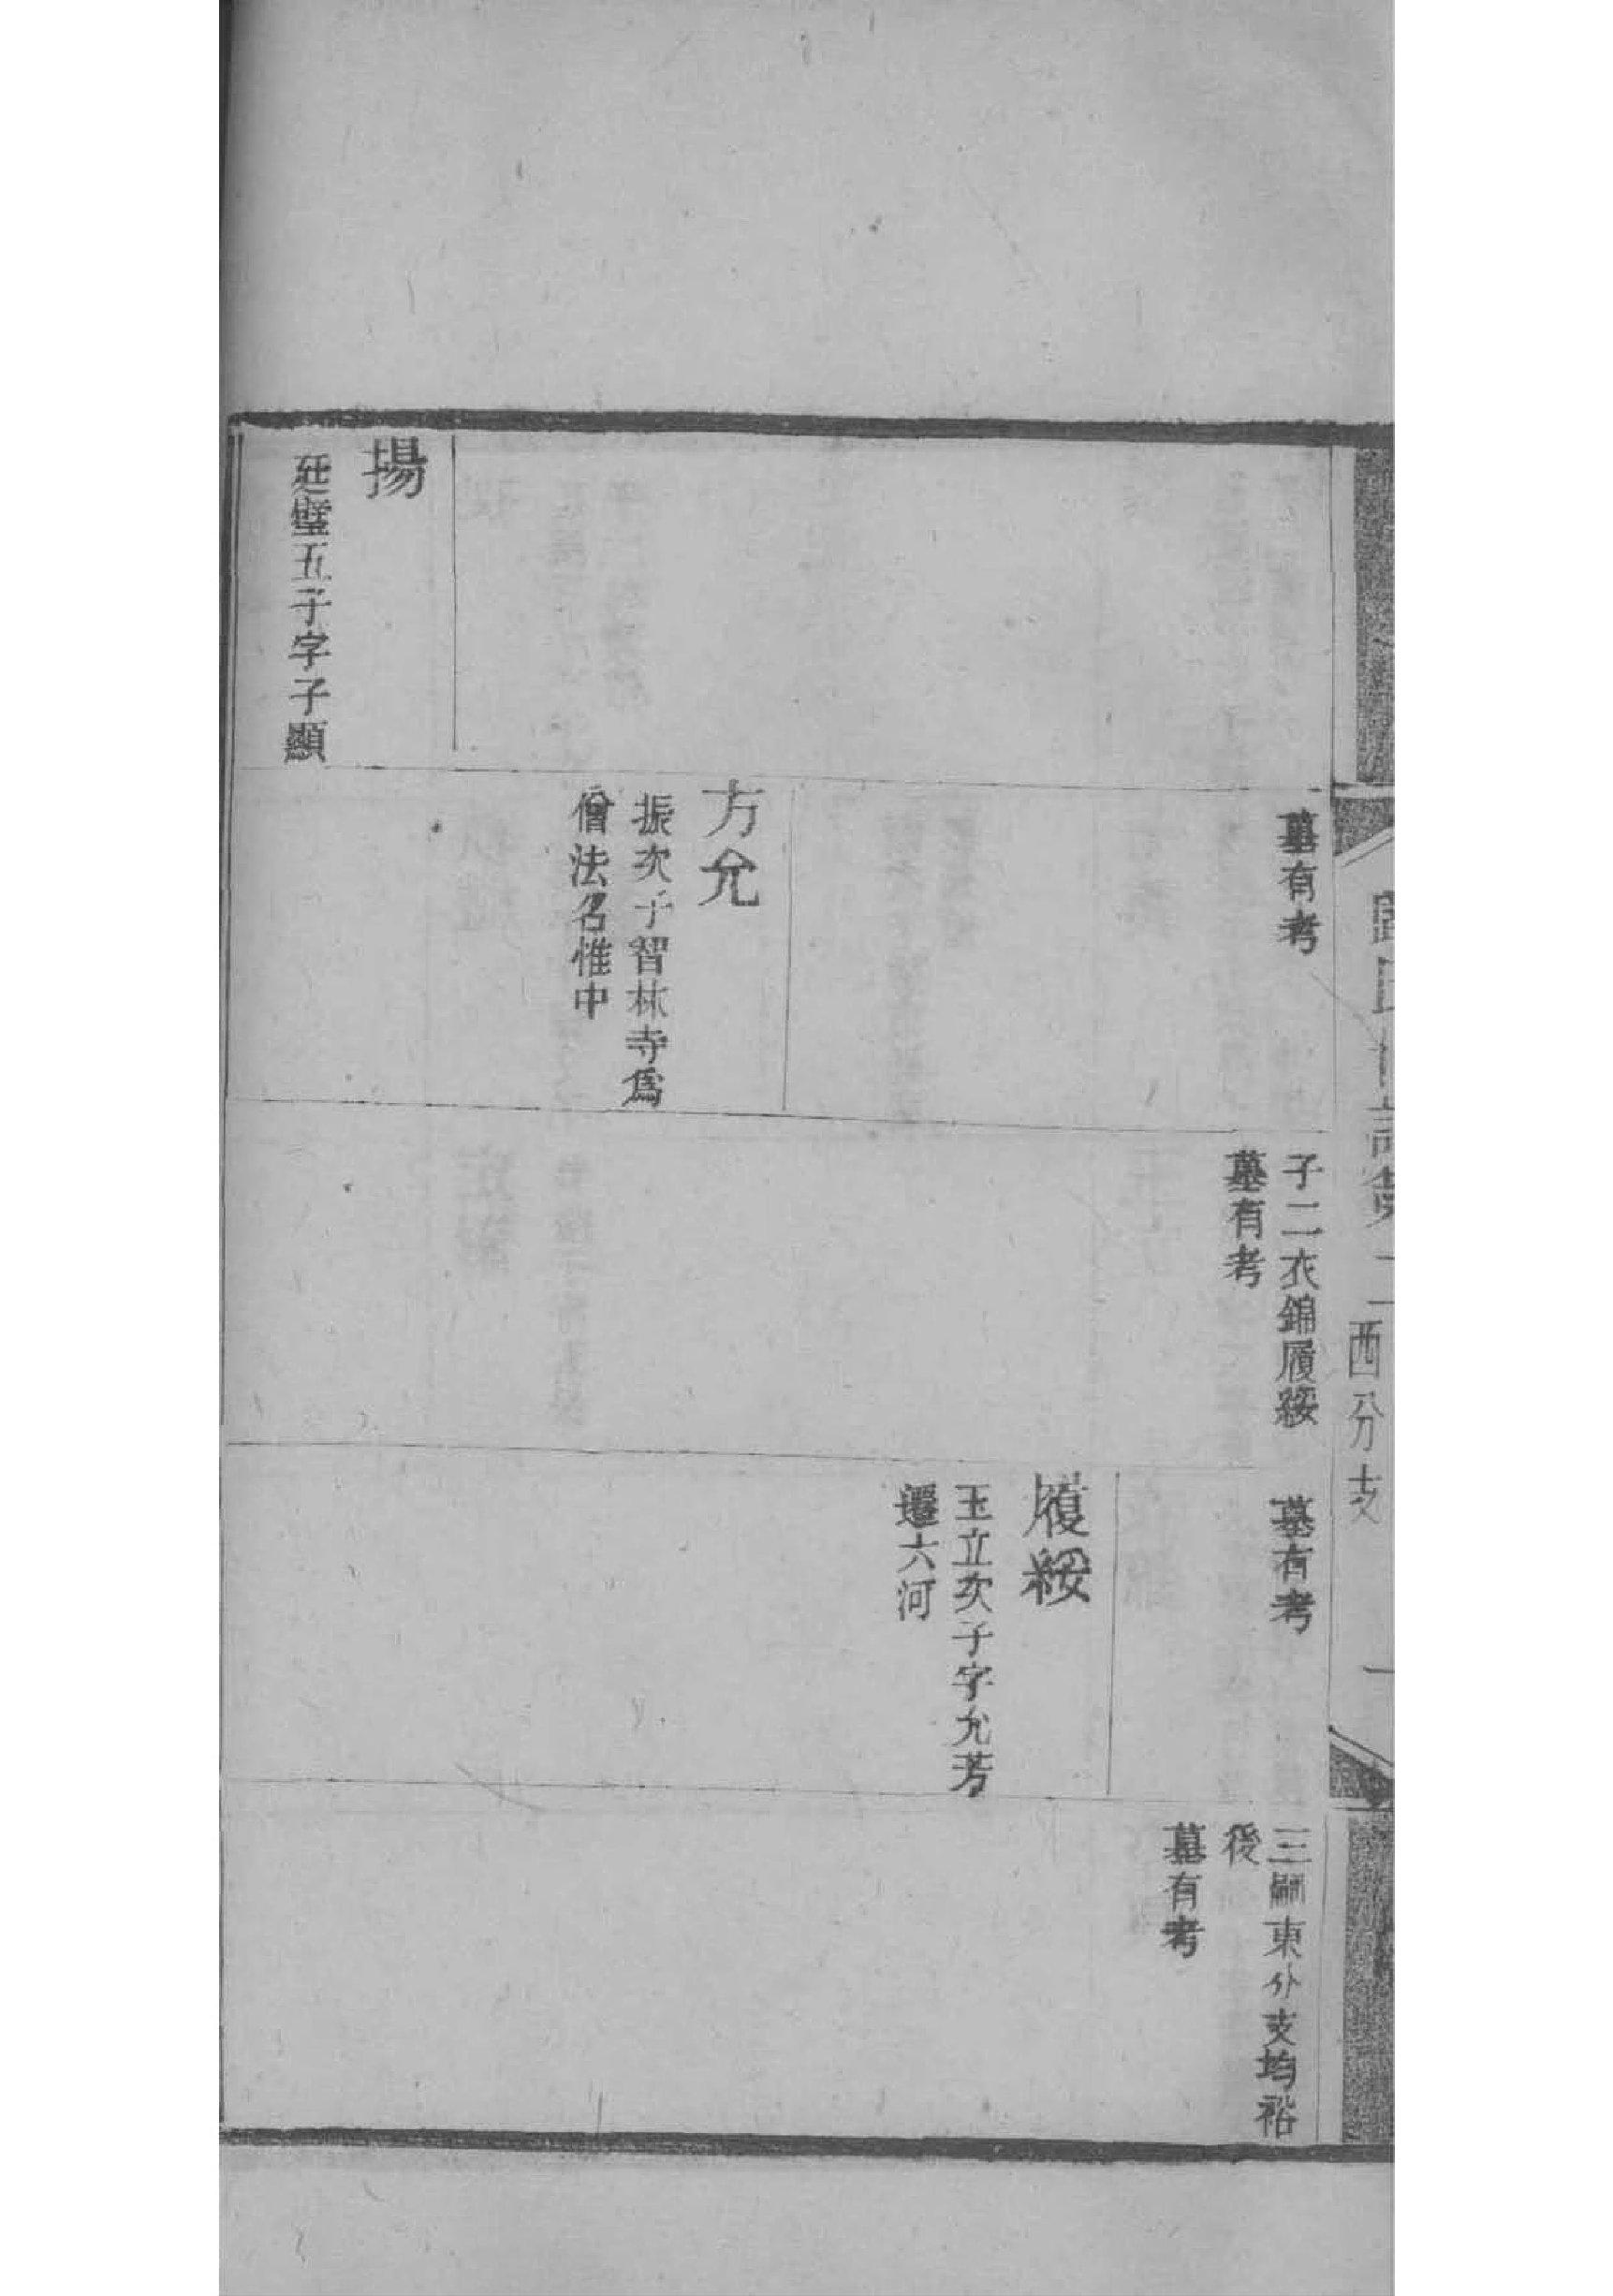 西分支
一
揚
廷璧五子字子顯
墓有考
方允
振次子智林寺爲
僧法名惟中
子二衣錦履綏
墓有考
墓有考
履綏
玉立次子字允芳
遷六河
三嗣東分支均裕
後
墓有考